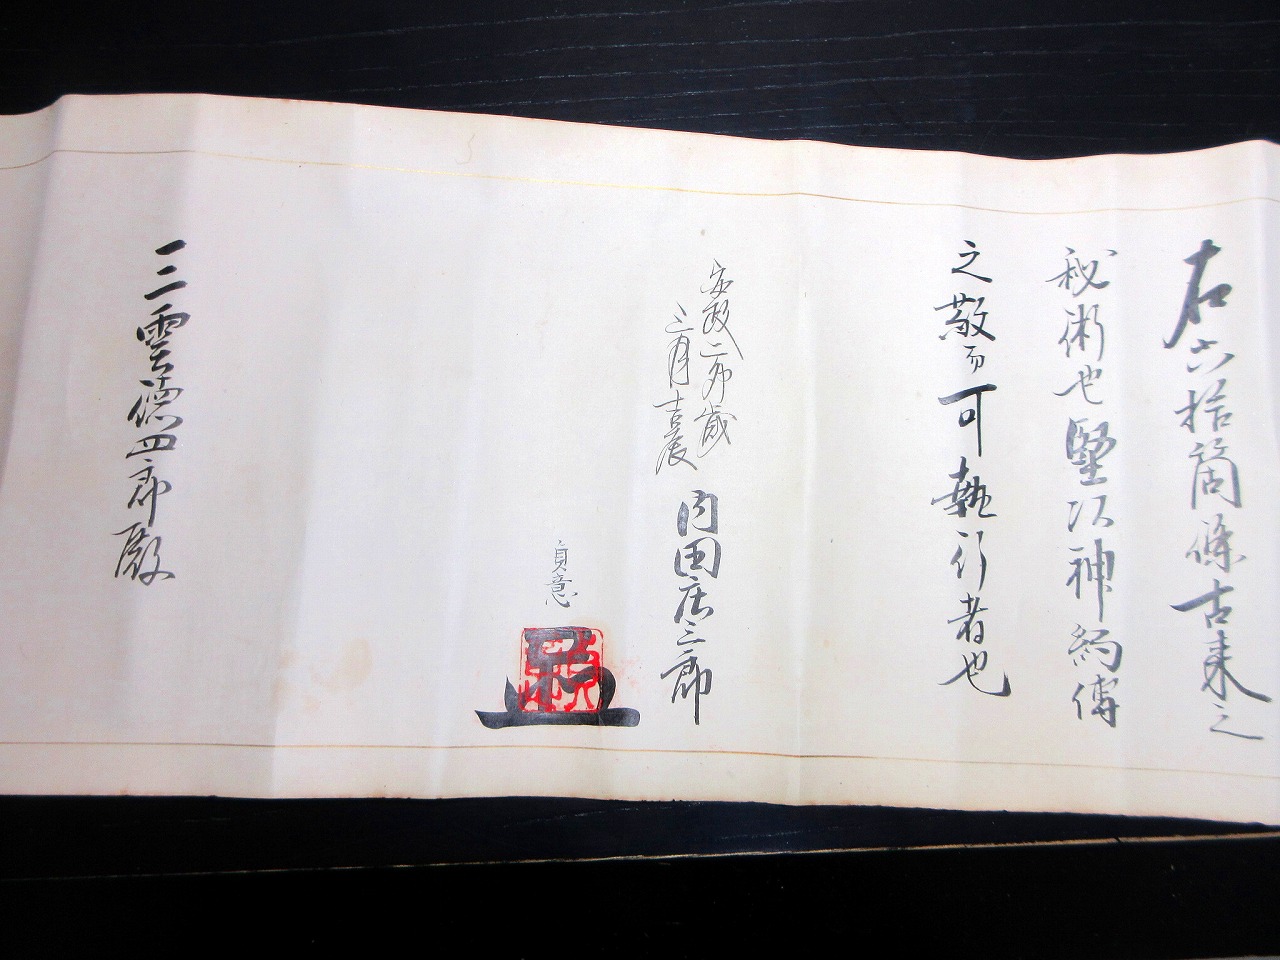 右六拾箇條古来之
秘術也堅以神約傳
之敬而可執行者也
安政二卯歳
三月吉辰
内田庄三郎
貞意
三雲徳四郎殿